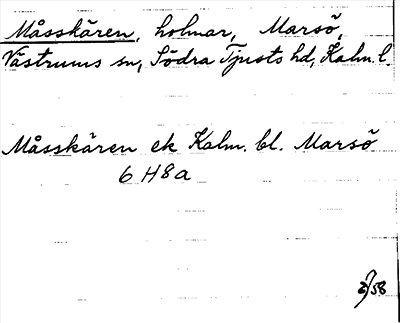 Måsskären, holmar, Marsö,
Västrums sn, Södra Tjusts hd, Kalm. l.
Måsskären ek Kalm. bl. Marsö
6 H8a